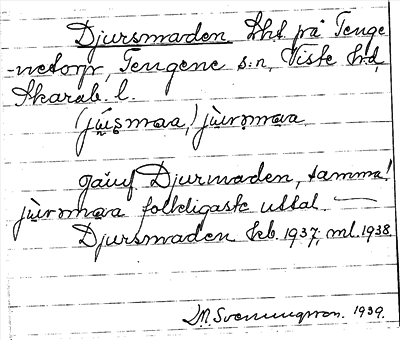 Djursmaden tht på Tenge
-netorp, Tengene s:n, Viste hd,
Skarab. l.
(jùs̩maa,) jùrsmaa
Djurmaden, samma!
jùrsmaa folkligaste uttal. —
Djursmaden keb. 1937, ml. 1938
M. Svenungsson. 1939.